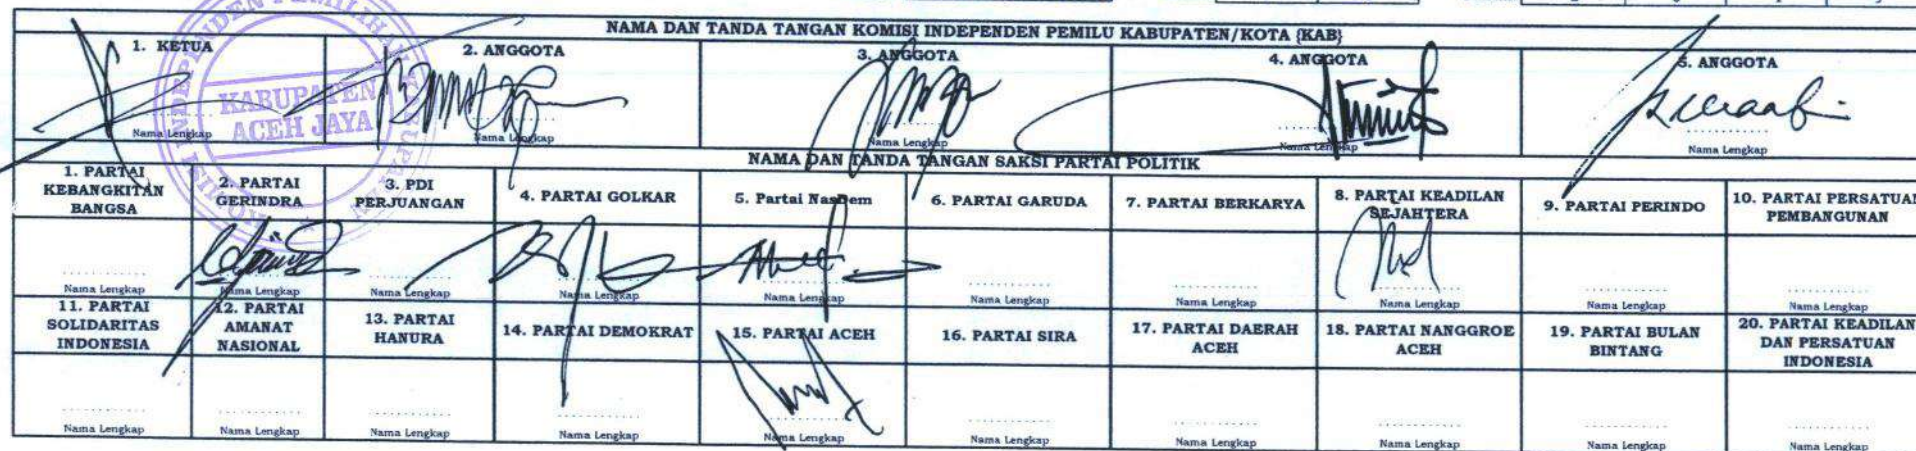 NAMA DAN TANDA TANGAN KOMISI INDEPENDEN PEMILU KABUPATEN/KOTA {KAB}
1. KETUA
2. ANGGOTA
3. ANGGOTA
4. ANGGOTA
5. ANGGOTA
KABUPATEN
ACEH JAYA
Nama Lengkap
Nama Lengkap
Nama Lengkap
Nama Lengkap
Nama Lengkap
NAMA DAN TANDA TANGAN SAKSI PARTAI POLITIK
1. PARTAI
KEBANGKITAN
BANGSA
2. PARTAI
GERINDRA
3. PDI
PERJUANGAN
4. PARTAI GOLKAR
5. Partai NasDem
6. PARTAI GARUDA
7. PARTAI BERKARYA
8. PARTAI KEADILAN
SEJAHTERA
9. PARTAI PERINDO
10. PARTAI PERSATUAN
PEMBANGUNAN
Nama Lengkap
Nama Lengkap
Nama Lengkap
Nama Lengkap
Nama Lengkap
Nama Lengkap
Nama Lengkap
Nama Lengkap
Nama Lengkap
Nama Lengkap
11. PARTAI
SOLIDARITAS
INDONESIA
12. PARTAI
AMANAT
NASIONAL
13. PARTAI
HANURA
14. PARTAI DEMOKRAT
15. PARTAI ACEH
16. PARTAI SIRA
17. PARTAI DAERAH
ACEH
18. PARTAI NANGGROE
ACEH
19. PARTAI BULAN
BINTANG
20. PARTAI KEADILAN
DAN PERSATUAN
INDONESIA
Nama Lengkap
Nama Lengkap
Nama Lengkap
Nama Lengkap
Nama Lengkap
Nama Lengkap
Nama Lengkap
Nama Lengkap
Nama Lengkap
Nama Lengkap